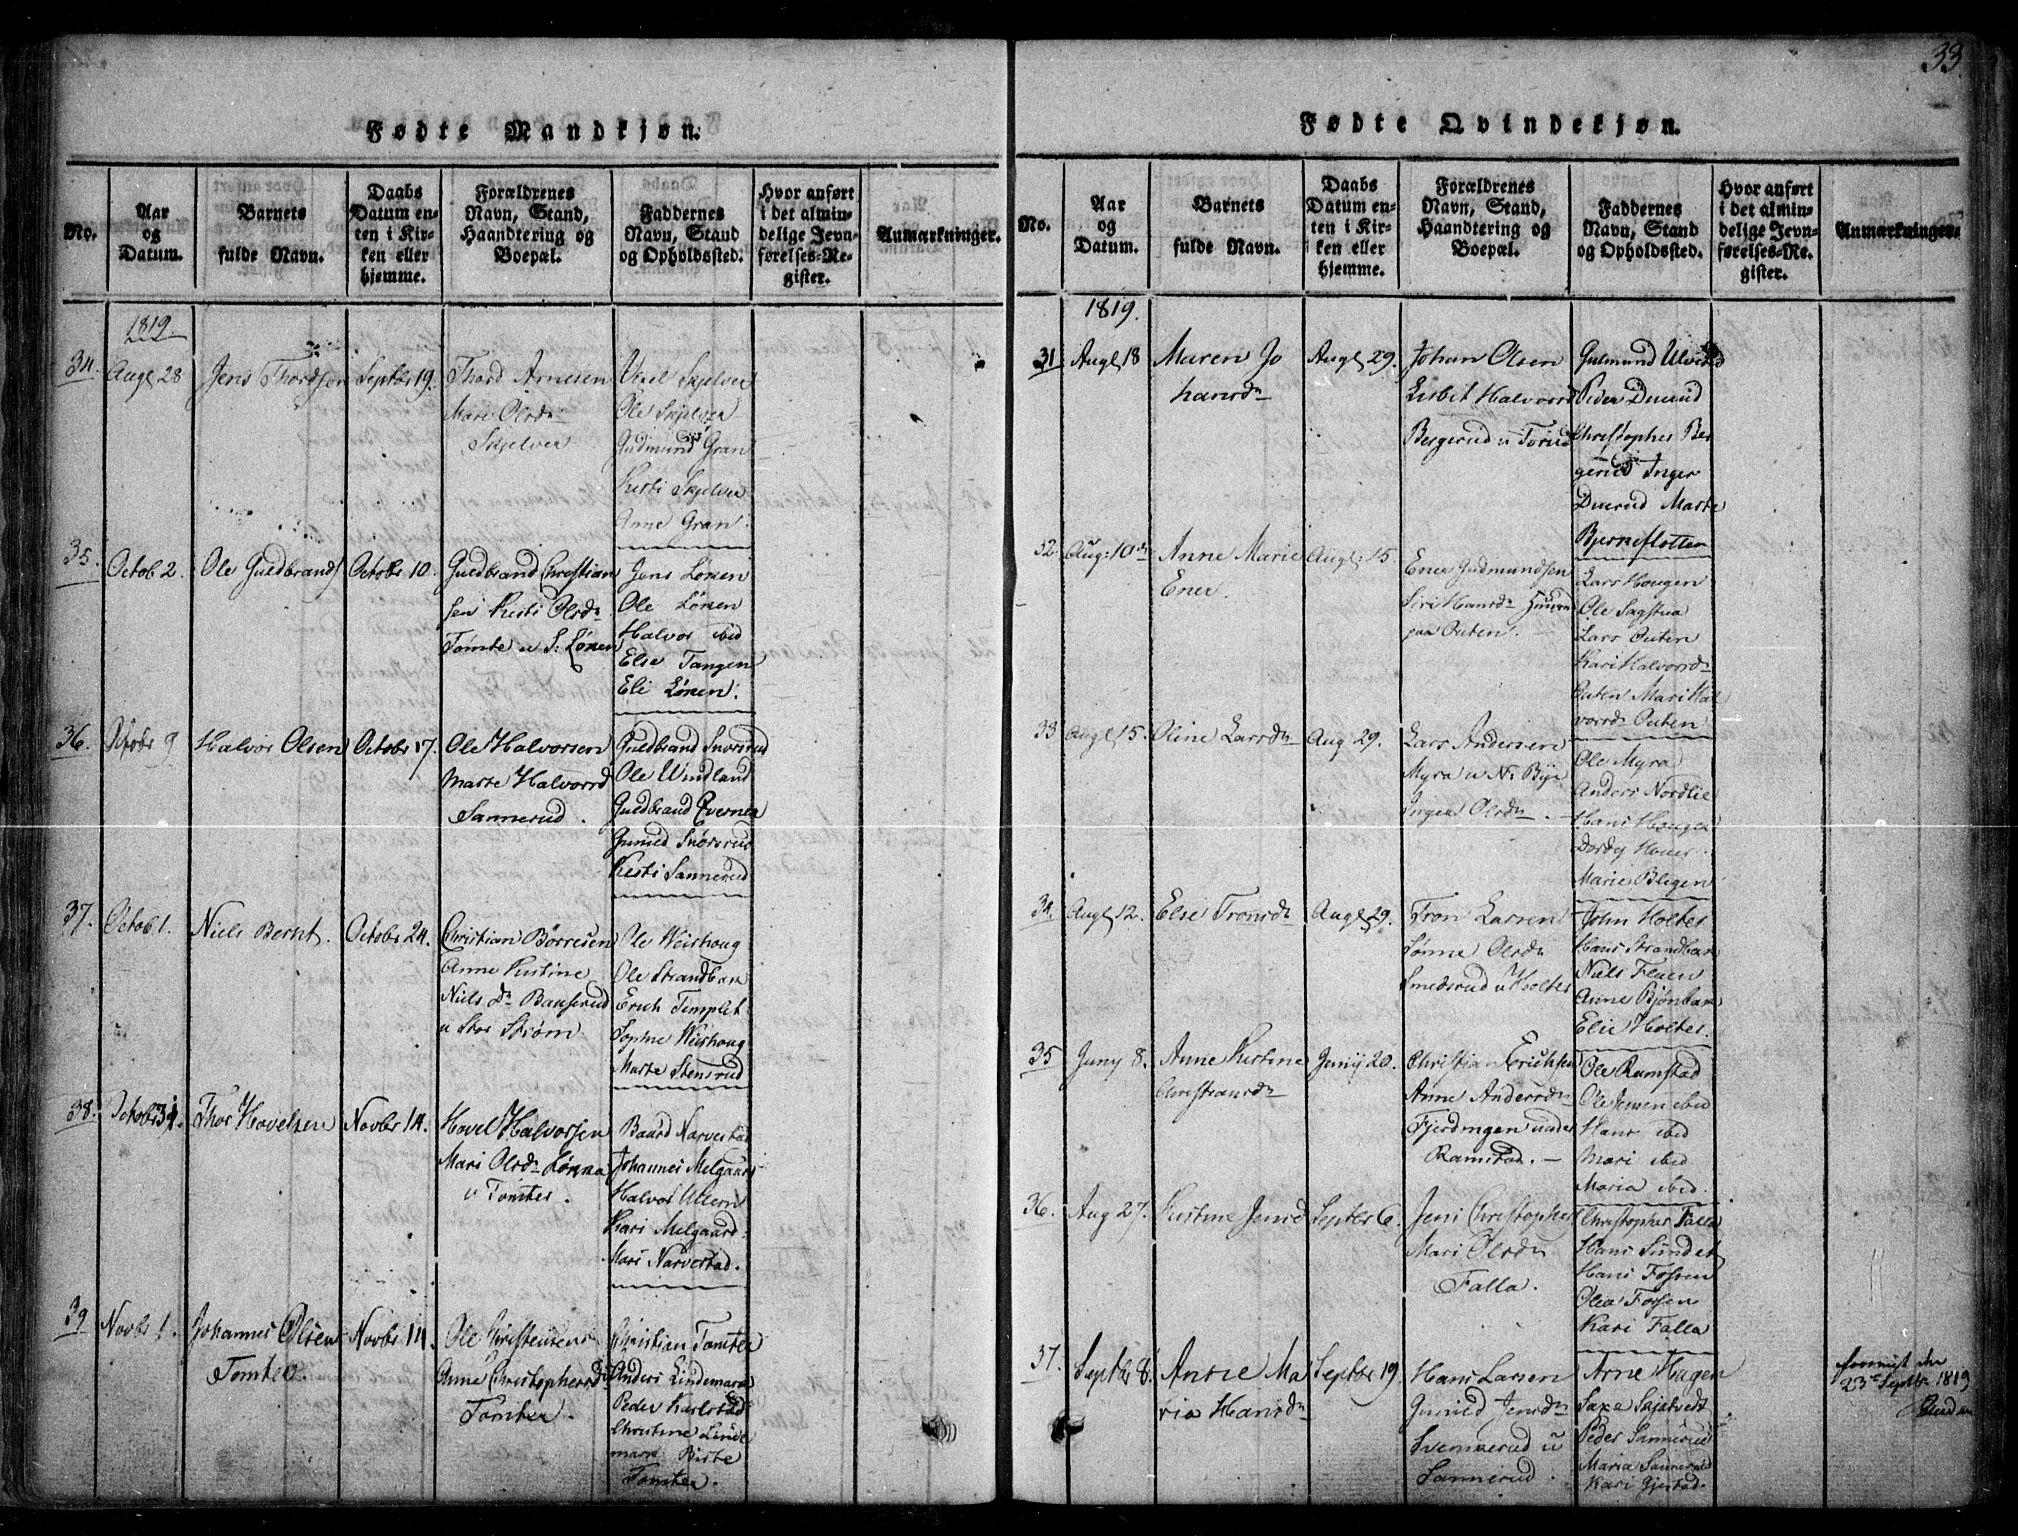 33.
Fødte Mandkjøn.
No.
Aar
og
Datum.
Barnets
fulde Navn.
Daabs
Datum en-
ten i Kir-
ken eller
hjemme.
Forældrenes
Navn, Stand,
Haandtering og
Boepæl.
Faddernes
Navn, Stand
og Opholdssted.
Hvor anført
i det almin-
delige Jevn-
førelses-Re-
gister.
Anmærkninger.
1819.
34.
Augl 28
Jens Thordsen
Septbr 19.
Thord Arnesen
Mari Olsdn
Skjelver
Skjelver
Ole Skjelver
Gudmund Gran
Kirsti Skjelver
Anne Gran.
35.
Octob 2.
Ole Guldbrands
Octobr 10.
Guldbrand Christian
sen Kirsti Olsdn
Tomte u S: Lønen
Jens Lønen
Ole Lønen
Halvor ibid
Else Tangen
Eli Lønen.
36.
Octobr 9
Halvor Olsen
Octobr 17.
Ole Halvorsen
Marte Halvorsd
Sannerud.
Guldbrand Snorsrud
Ole Windland
Guldbrand Evernes
Gunild Snorsrud
Kirsti Sannerud
37.
Octob 1.
Niels Bernt.
Octobr 24.
Christian Børresen
Anne Kirstine
Niels Dn Bauserud
u Stor Strøm
Ole Weishoug
Ole Strandbera
Erich Templet
Sophie Weishoug
Marte Stensrud
38.
Octobr 31.
Thor Hovelsen
Novbr 14.
Hovel Halvorsen
Mari Olsdn Lønna
u Tomter.
Baard Narvestad
Johannes Melgaard
Halvor Ullern
Kari Melgaard.
Mari Narvestad.
39
Novbr 1.
Johannes Olsen
Tomter.
Novbr 14.
Ole Christensen
Anne Christophersdr
Tomter.
Christian Tomter
Anders Lindemark
Peder Karlstad
Christine Linde
mark Birte
Tomter.
Fødte Qvindekjøn.
No.
Aar
og
Datum.
Barnets
fulde Navn.
Daabs
Datum en-
ten i Kir-
ken eller
hjemme.
Forældrenes
Navn, Stand,
Haandtering og
Boepæl.
Faddernes
Navn, Stand
og Opholdssted.
Hvor anført
i det almin-
delige Jevn-
førelses-Re-
gister.
Anmærkninger.
1819.
31
Augl 18
Maren Jo
hansdn
Augl 29.
Johan Olsen
Lisbet Halvorsd
Bergerud u Torud
Gulmund Ulverud
Peder Duerud
Christopher Ber
gerud Inger
Duerud Marte
Bjerkeflotten
32.
Aug: 10de
Anne Marie
Ener.
Augl 15.
Ener Gudmundsen
Siri Hansdn
paa Outen.
Lars Hougen
Ole Sagstua
Lars Outen
Kari Halvorsdn
Outen Mari Hal
vorsdn Outen
33
Augl 15.
Oline Larsdn
Aug 29.
Lars Andersen
Myra u N: Bye
Inger Olsdn.
Ole Myra
Anders Nordlie
Hans Hougen
Dordy Houer
Marie Bligen
34.
Augl 12.
Else Tronsdn
Augl 29.
Tron Larsen
Sønne Olsdn
Smedsrud u Holter
John Holter
Hans Strandbera
Niels Fluen
Anne Bjønbera
Elie Holter.
35
Juny 8.
Anne Kirstine
Christiansdn
Junij 20.
Christian Erichsen
Anne Andersdn
Fjerdingen under
Ramstad.
Ole Ramstad
Ole Jensen ibid
Hans ibid
Mari ibid
Maria ibid.
36.
Aug 27.
Kirstine Jensd
Septbr 6.
Jens Christopher
Mari Olsdn
Falla.
Christopher Falla
Hans Sundet
Hans Fossen
Olea Fossen
Kari Falla
37.
Septbr 8.
Anne Ma
ria Hansdn
Septbr 19.
Hans Larsen
Gunild Jensdn
Svennerud u
Sannerud.
Arne Hagen
Saxe Skjatvedt
Peder Sannerud
Maria Sannerud
Kari Gjestad.
23de Septbr 1819